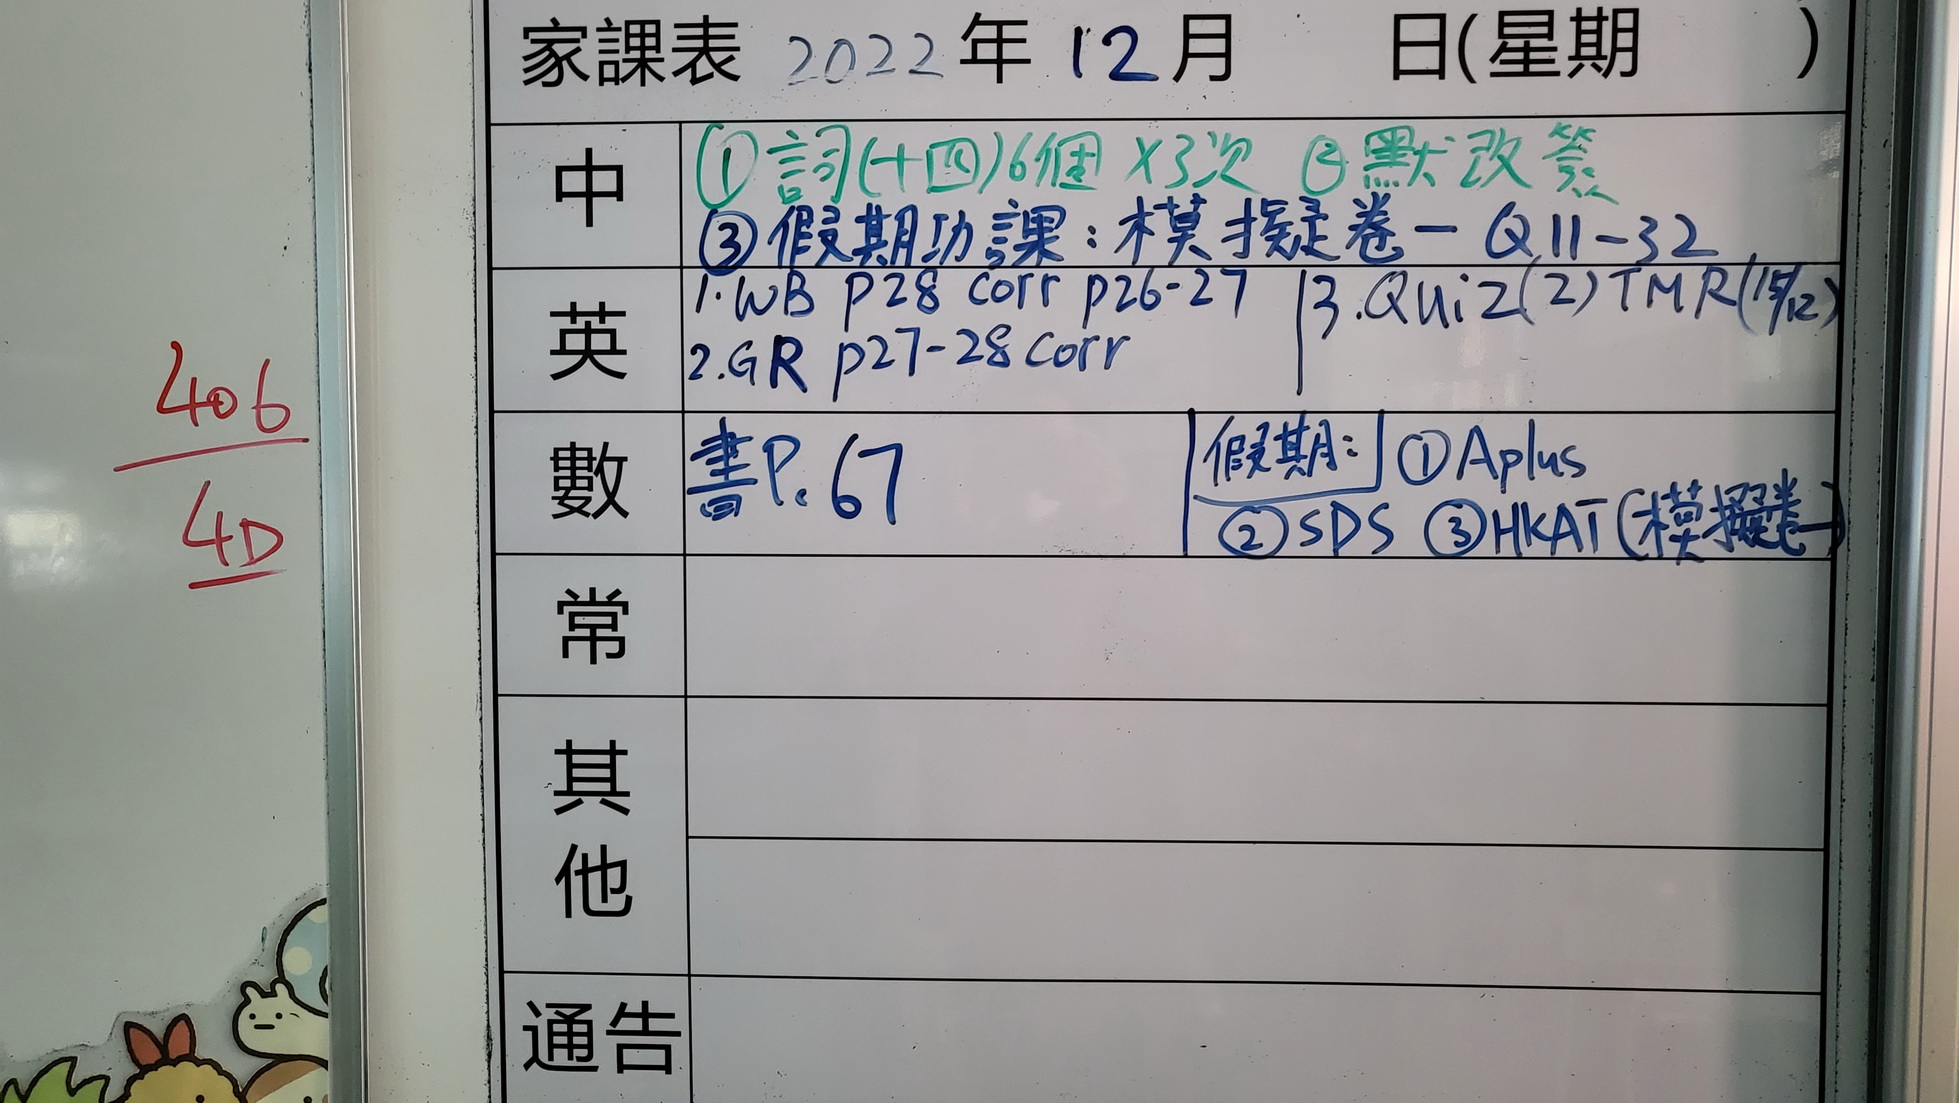 家課表 2022年12月 日(星期 )
中
①詞(十四)6個 X3次 ②默改簽
③假期功課:模擬卷一 Q11-32
英
1.WB P28 corr p26-27
2.GR p27-28 corr
3.Quiz(2) TMR(15/12)
數
書P.67
假期: ①Aplus
②SDS ③HKAT(模擬卷一)
常
其他
通告
406
4D